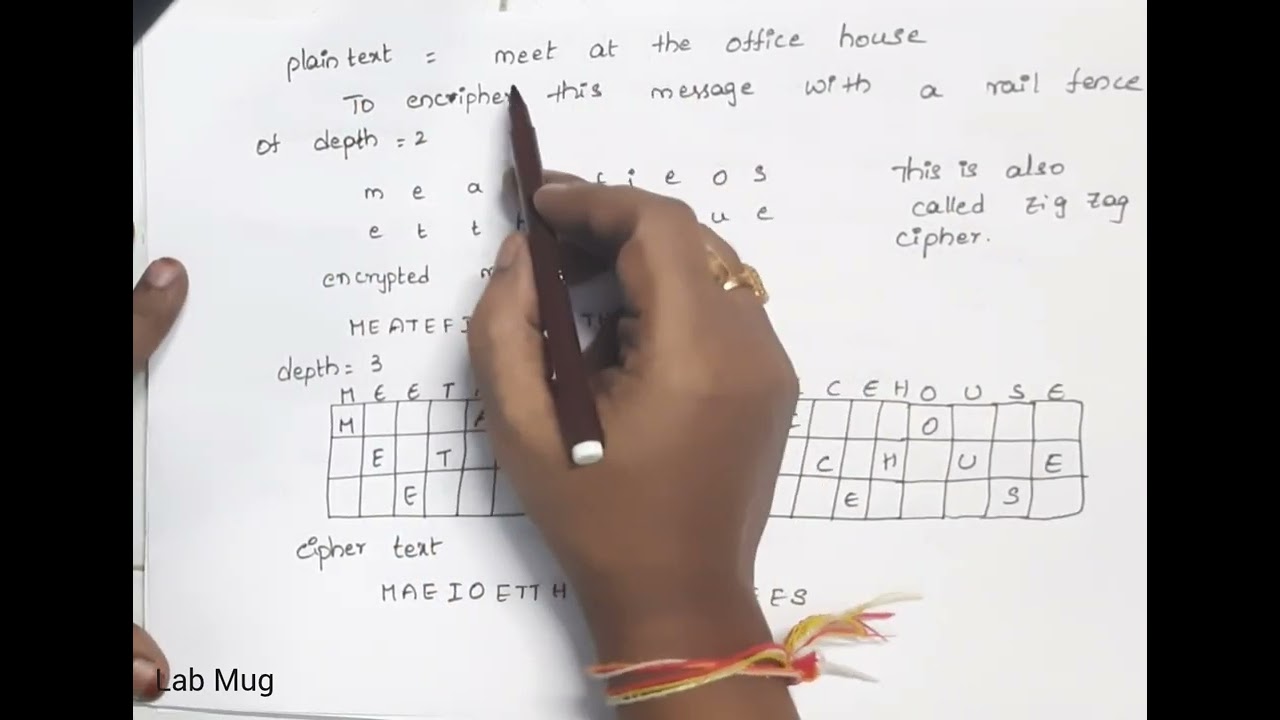 plain text = meet at the office house
To encripher this message with a rail fence
of depth = 2
m e a f i e o s
e t t u e
This is also
called zig zag
cipher.
encrypted
MEATEFI TH
depth = 3
M E E T C E H O U S E
M A O
E T C H U E
E E S
cipher text
MAEIOETTH ES
Lab Mug